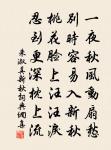 一夜秋風動扇愁
別時容易入新秋
桃花臉上汪汪淚
忍到更深枕上流
朱淑真新秋詞典網